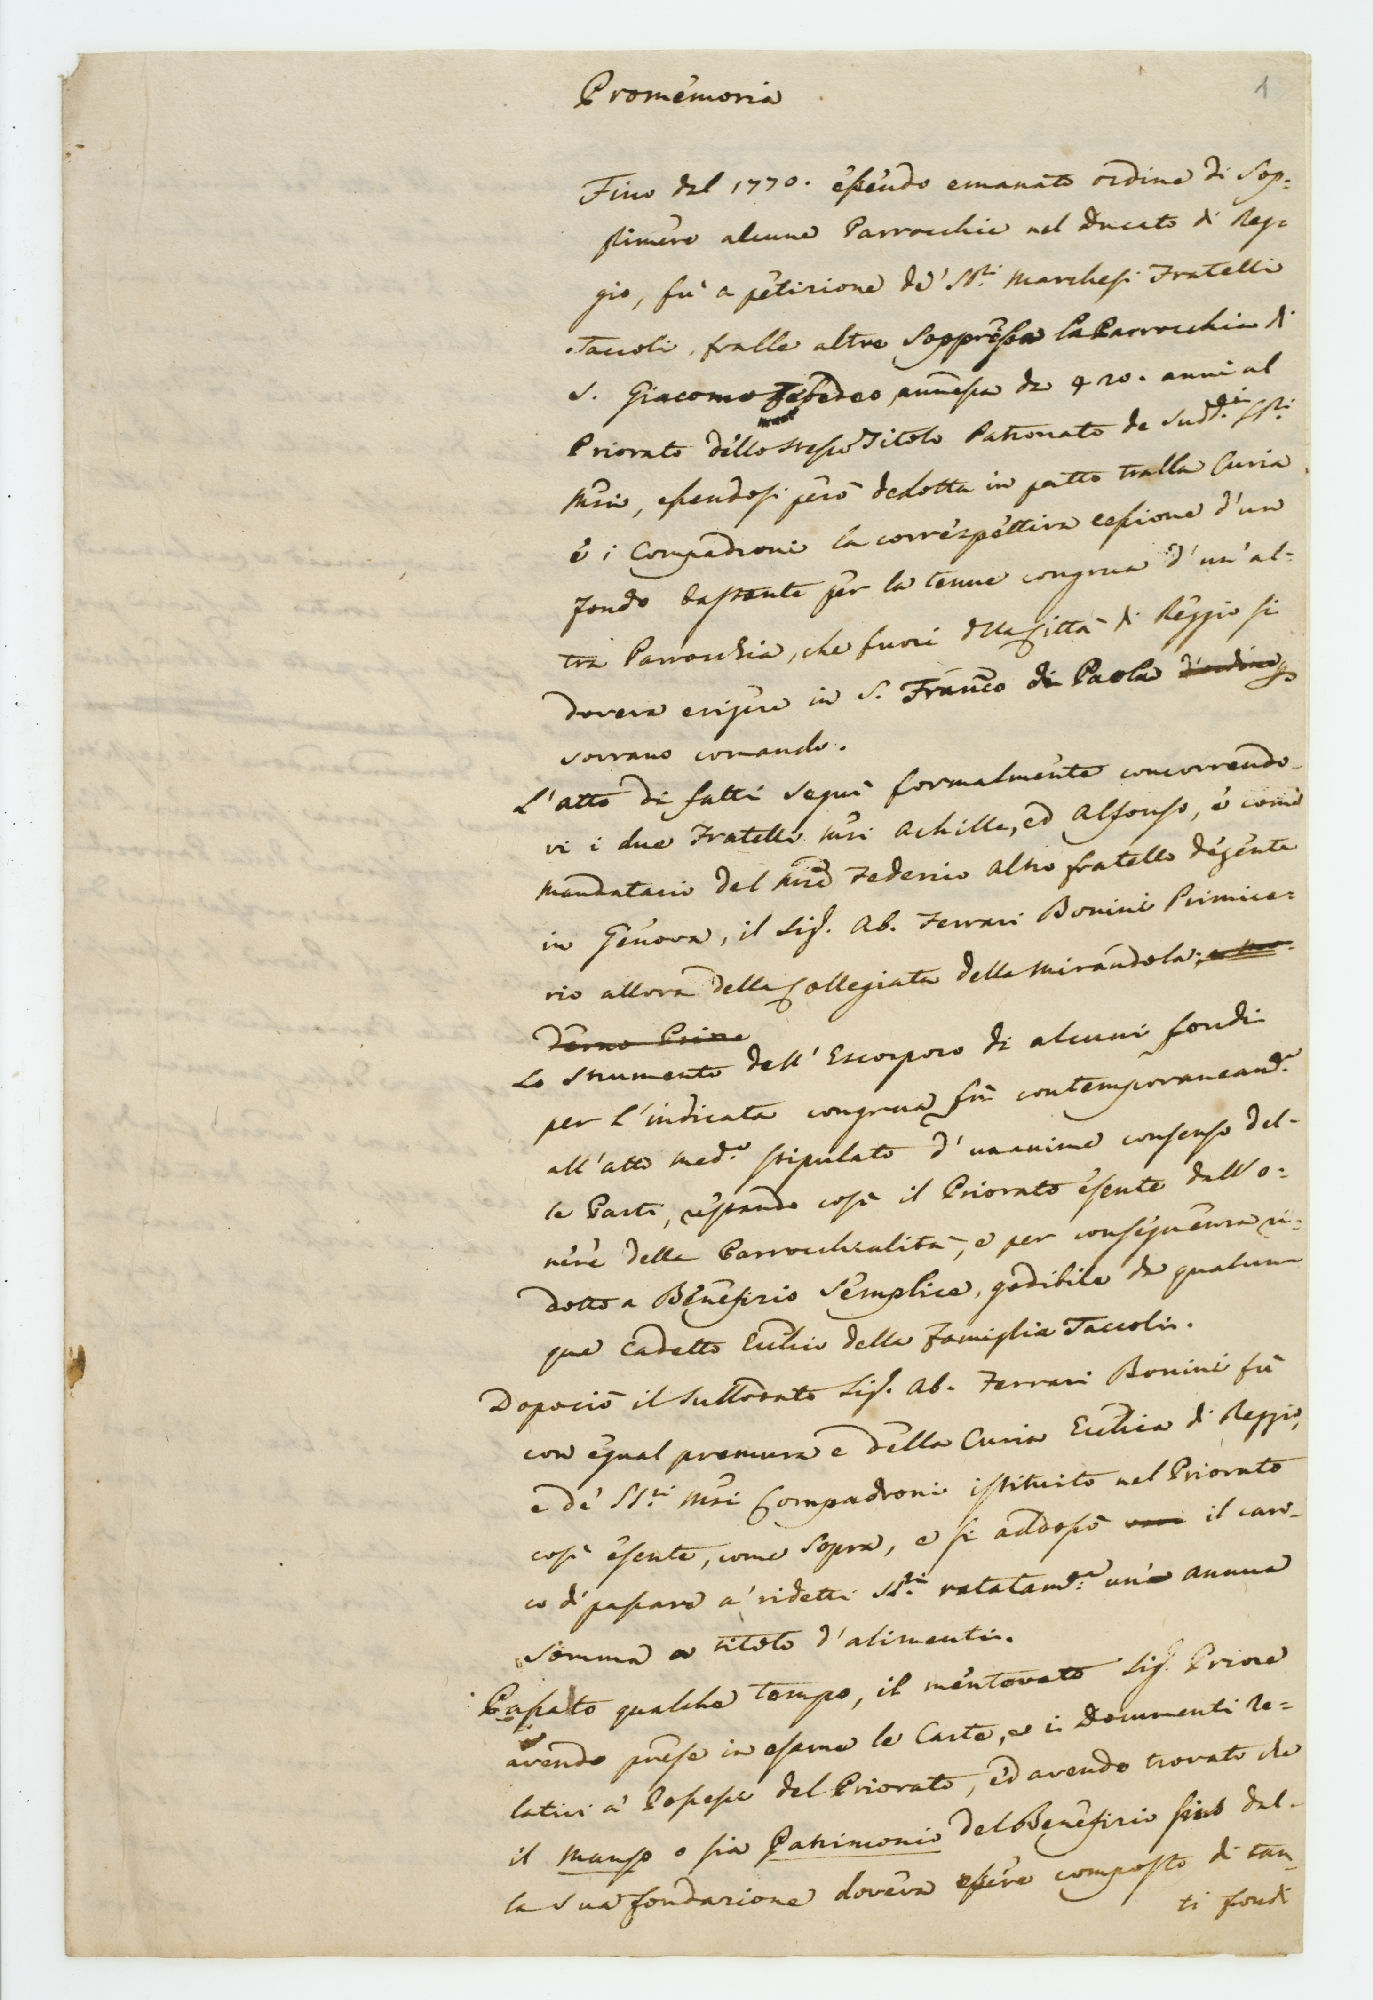 Promemoria
1
Fino dal 1770. essendo emanato ordine di Sop-
primere alcune Parrocchie nel Ducato di Reg-
gio, fù a petizione de' SS.ri Marchesi Fratelli
Taccoli, fralle altre Soppressa la Parrocchia di
S. Giacomo Zebedeo annessa da 420. anni al
Priorato dello stesso Titolo Patronato de Sudd.i SS.ri
Mrsi, essendosi però dedotta in patto tralla Curia
e i Compadroni la correspettiva cessione d'un
fondo bastante per la tenue congrua d'un'al-
tra Parrocchia, che fuori della Città di Reggio si
doveva erigere in S. Franco di Paola d'ordine
sovrano comando.
L'atto di fatti seguì formalmente concorrendo-
vi i due Fratelli Mrsi Achille, ed Alfonso, e come
mandatario del Mrse Federico Altro fratello degente
in Genova, il Sig.r Ab. Ferrari Bonini Primice-
rio allora della Collegiata della Mirandola, e mo-
derno Priore
Lo Strumento dell'Escorporo di alcuni fondi
per l'indicata congrua fù contemporaneam.e
all'atto med.o stipulato d'unanime consenso del-
le Parti, restando così il Priorato esente dall'o-
nere della Parrocchialità, e per conseguenza ri-
dotto a Benefizio Semplice, godibile da qualun-
que Cadetto Ecclico della Famiglia Taccoli.
Dopociò il sullodato Sig.r Ab. Ferrari Bonini fù
con egual premura e della Curia Ecclica di Reggio,
e de' SS.ri Mrsi Compadroni istituito nel Priorato
così esente, come Sopra, e si addossò il cari-
co di passare a' ridetti SS.ri ratatam.e un'annua
Somma a titolo d'alimenti.
Passato qualche tempo, il mentovato Sig.r Priore
avendo prese in esame le Carte, e i Documenti re-
lativi a' Possessi del Priorato, ed avendo trovato che
il Manso o sia Patrimonio del Benefizio sino dal-
la sua fondazione doveva essere composto di tan-
ti fondi